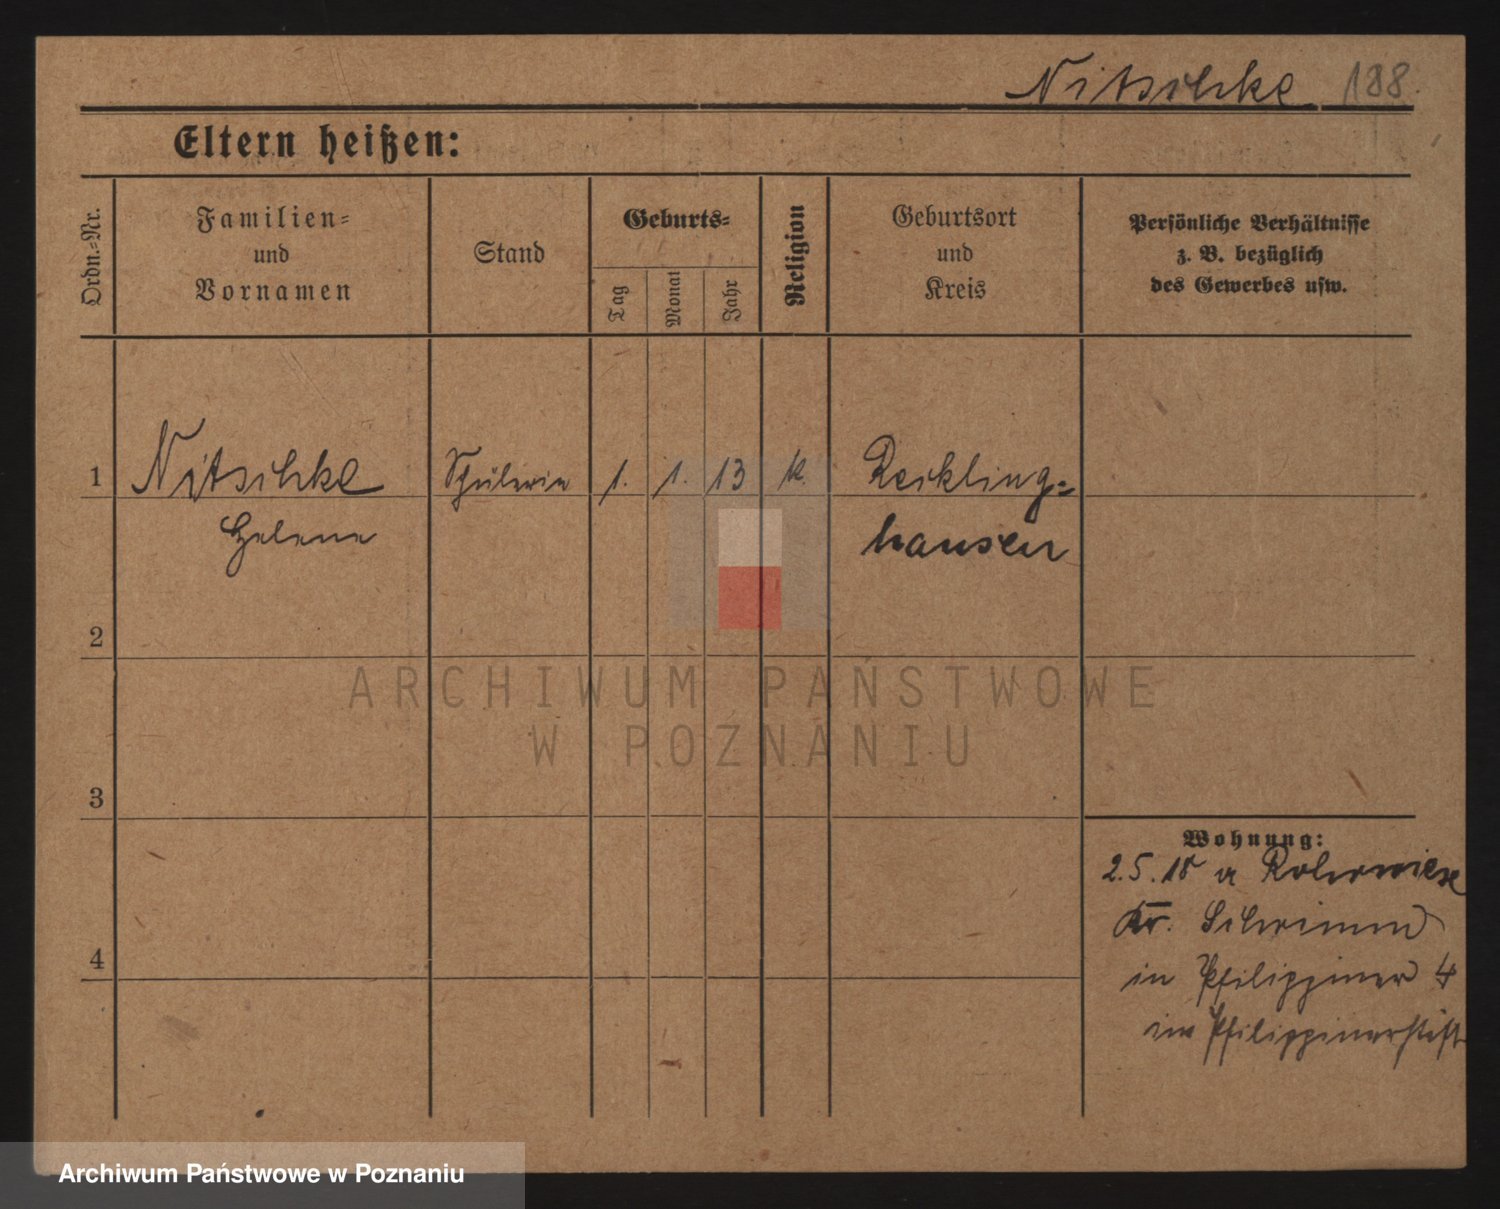 Nitschke 188.
Eltern heißen:
Ordn.=Nr.
Familien=
und
Vornamen
Stand
Geburts=
Tag
Monat
Jahr
Religion
Geburtsort
und
Kreis
Persönliche Verhältnisse
z. B. bezüglich
des Gewerbes usw.
1 Nitschke Schülerin 1. 1. 13 k. Reckling=
Helene hausen
2
3
4
Wohnung:
2.5.18 a Rohrwiese
Kr. Schrimm
in Philippiner 4
im Philippinerstift
ARCHIWUM PAŃSTWOWE
W POZNANIU
Archiwum Państwowe w Poznaniu